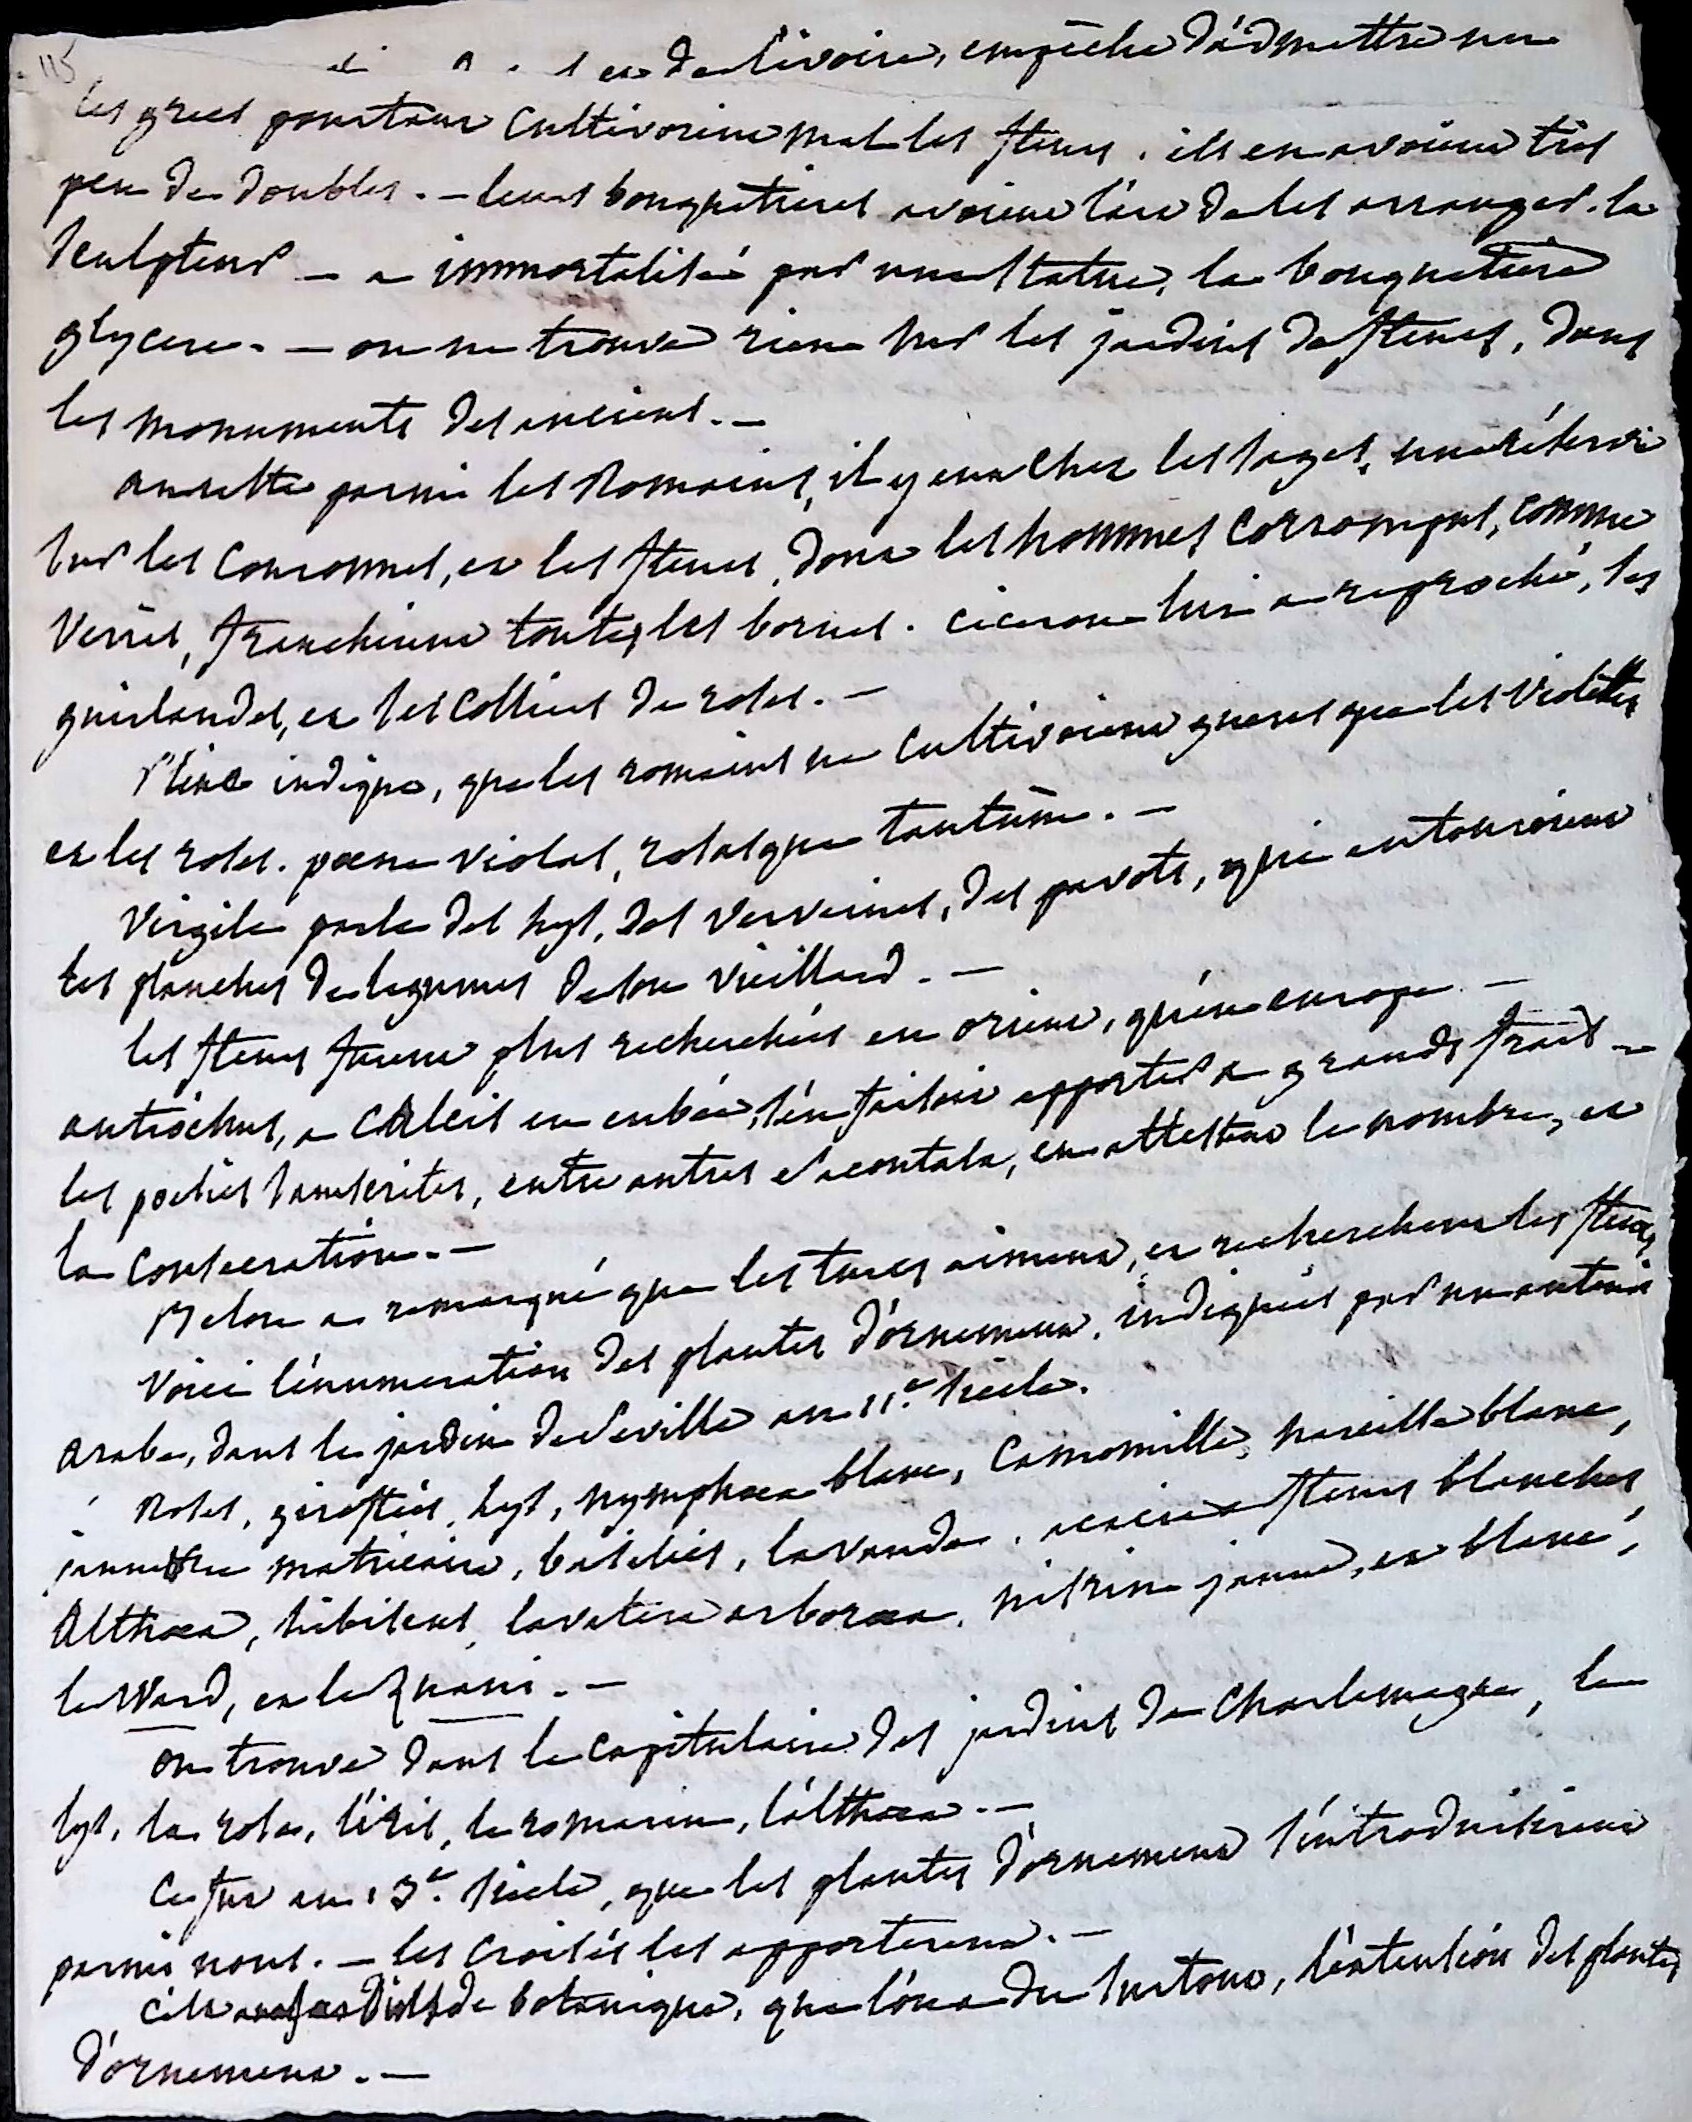 115
de l'ivoire, empêche d'admettre une
les grecs pourtant cultivoient mal les fleurs. ils en avoient très
peu de doubles. - leurs bouquetieres avoient l'art de les arranger. le
sculpteur - a immortalisé par une statue, la bouquetiere
glycere. - on ne trouve rien sur les jardins de fleurs, dans
les monuments des anciens. -
ensuite parmi les Romains, il y eut chez les sages, une réserve
sur les couronnes, et les fleurs, dont les hommes corrompus, comme
Verrès, franchirent toutes les bornes. ciceron lui a reproché, ses
guirlandes, et ses colliers de roses. -
Pline indique, que les romains ne cultivoient gueres que les violettes
et les roses. poene violas, rosasque tantùm. -
Virgile parle des lys, des verveines, des pavots, qui entouroient
les planches de legumes de son vieillard. -
les fleurs furent plus recherchées en orient, qu'en europe -
antiochus, a Calcis en eubée, s'en faisoit apporter a grands frais -
les poesies sanscrites, entre autres sacontala, en attestent le nombre, et
la consecration. -
Belon a remarqué que les turcs aiment, et recherchent les fleurs,
Voici l'énumeration des plantes d'ornement, indiquées par un auteur
arabe, dans le jardin de Seville au 11.e siecle.
Roses, giroflées, lys, nymphaea blanc, Camomille, narcisse blanc,
jaunâtre matricaire, basilics, lavande, acacia a fleurs blanches,
Althaea, hibiscus, lavatera arborea, nisrin jaune, et blanc,
le Ward, et le Khairi. -
on trouve dans le capitulaire des jardins de Charlemagne, le
lys, la rose, l'iris, le romarin, l'althaea. -
Ce fut au 13.e siecle, que les plantes d'ornement s'introduisirent
parmi nous. - les croisés les apporterent. -
de botanique, que l'on a du surtout, l'extension des plantes
d'ornement. -